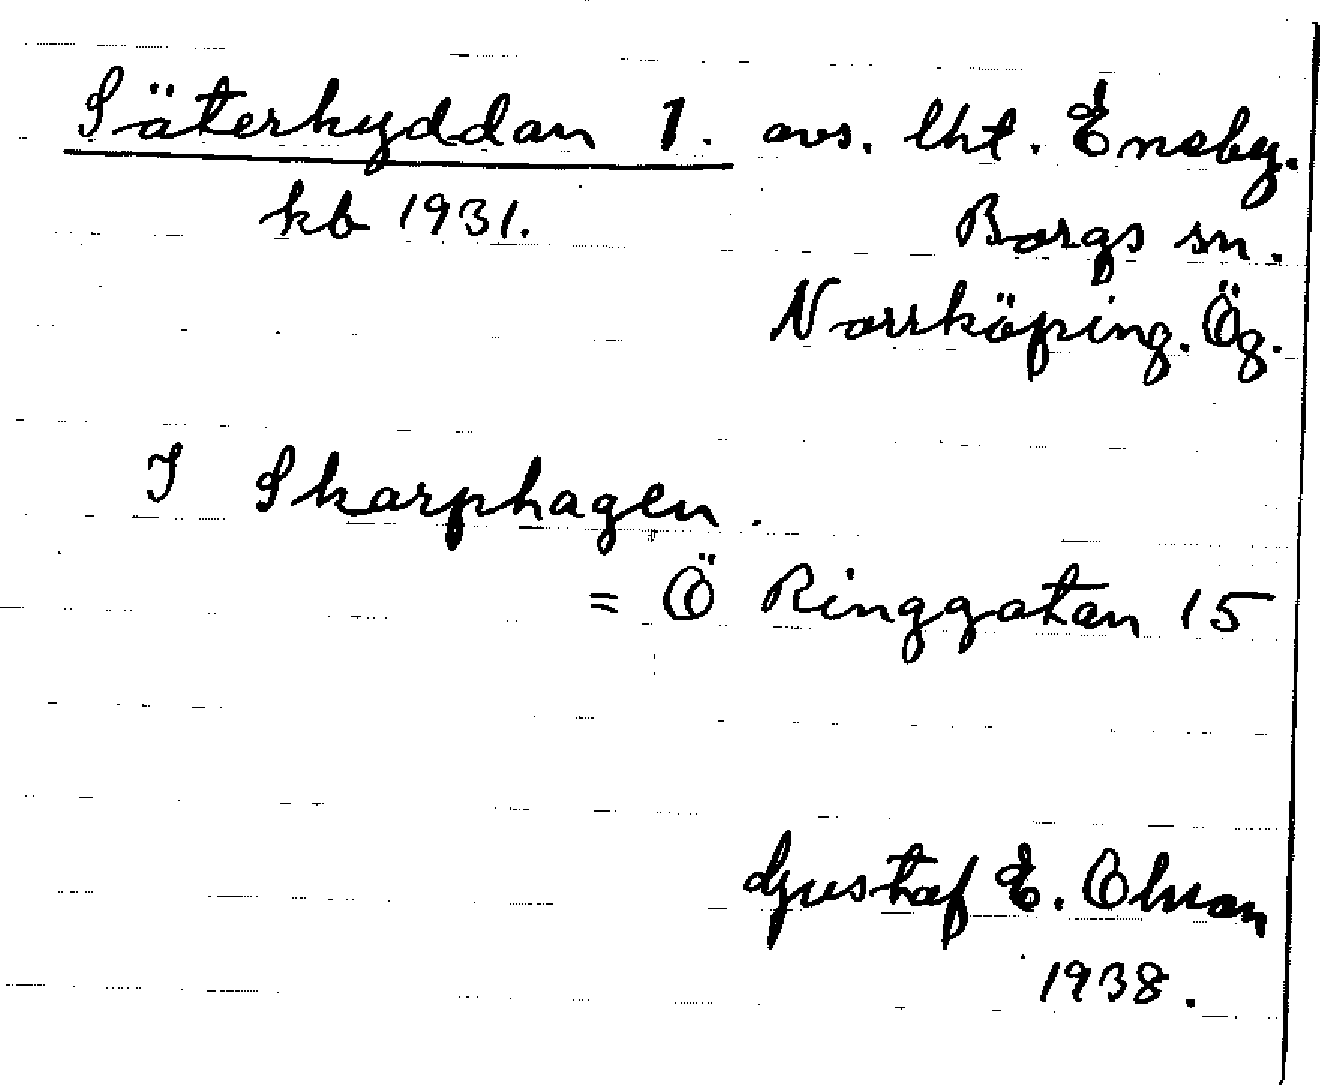 Säterhyddan 1. avs. lht. Eneby.
kb 1931.
Borgs sn.
Norrköping. Ög.
I Skarphagen.
= Ö Ringgatan 15
Gustaf E. Olson
1938.